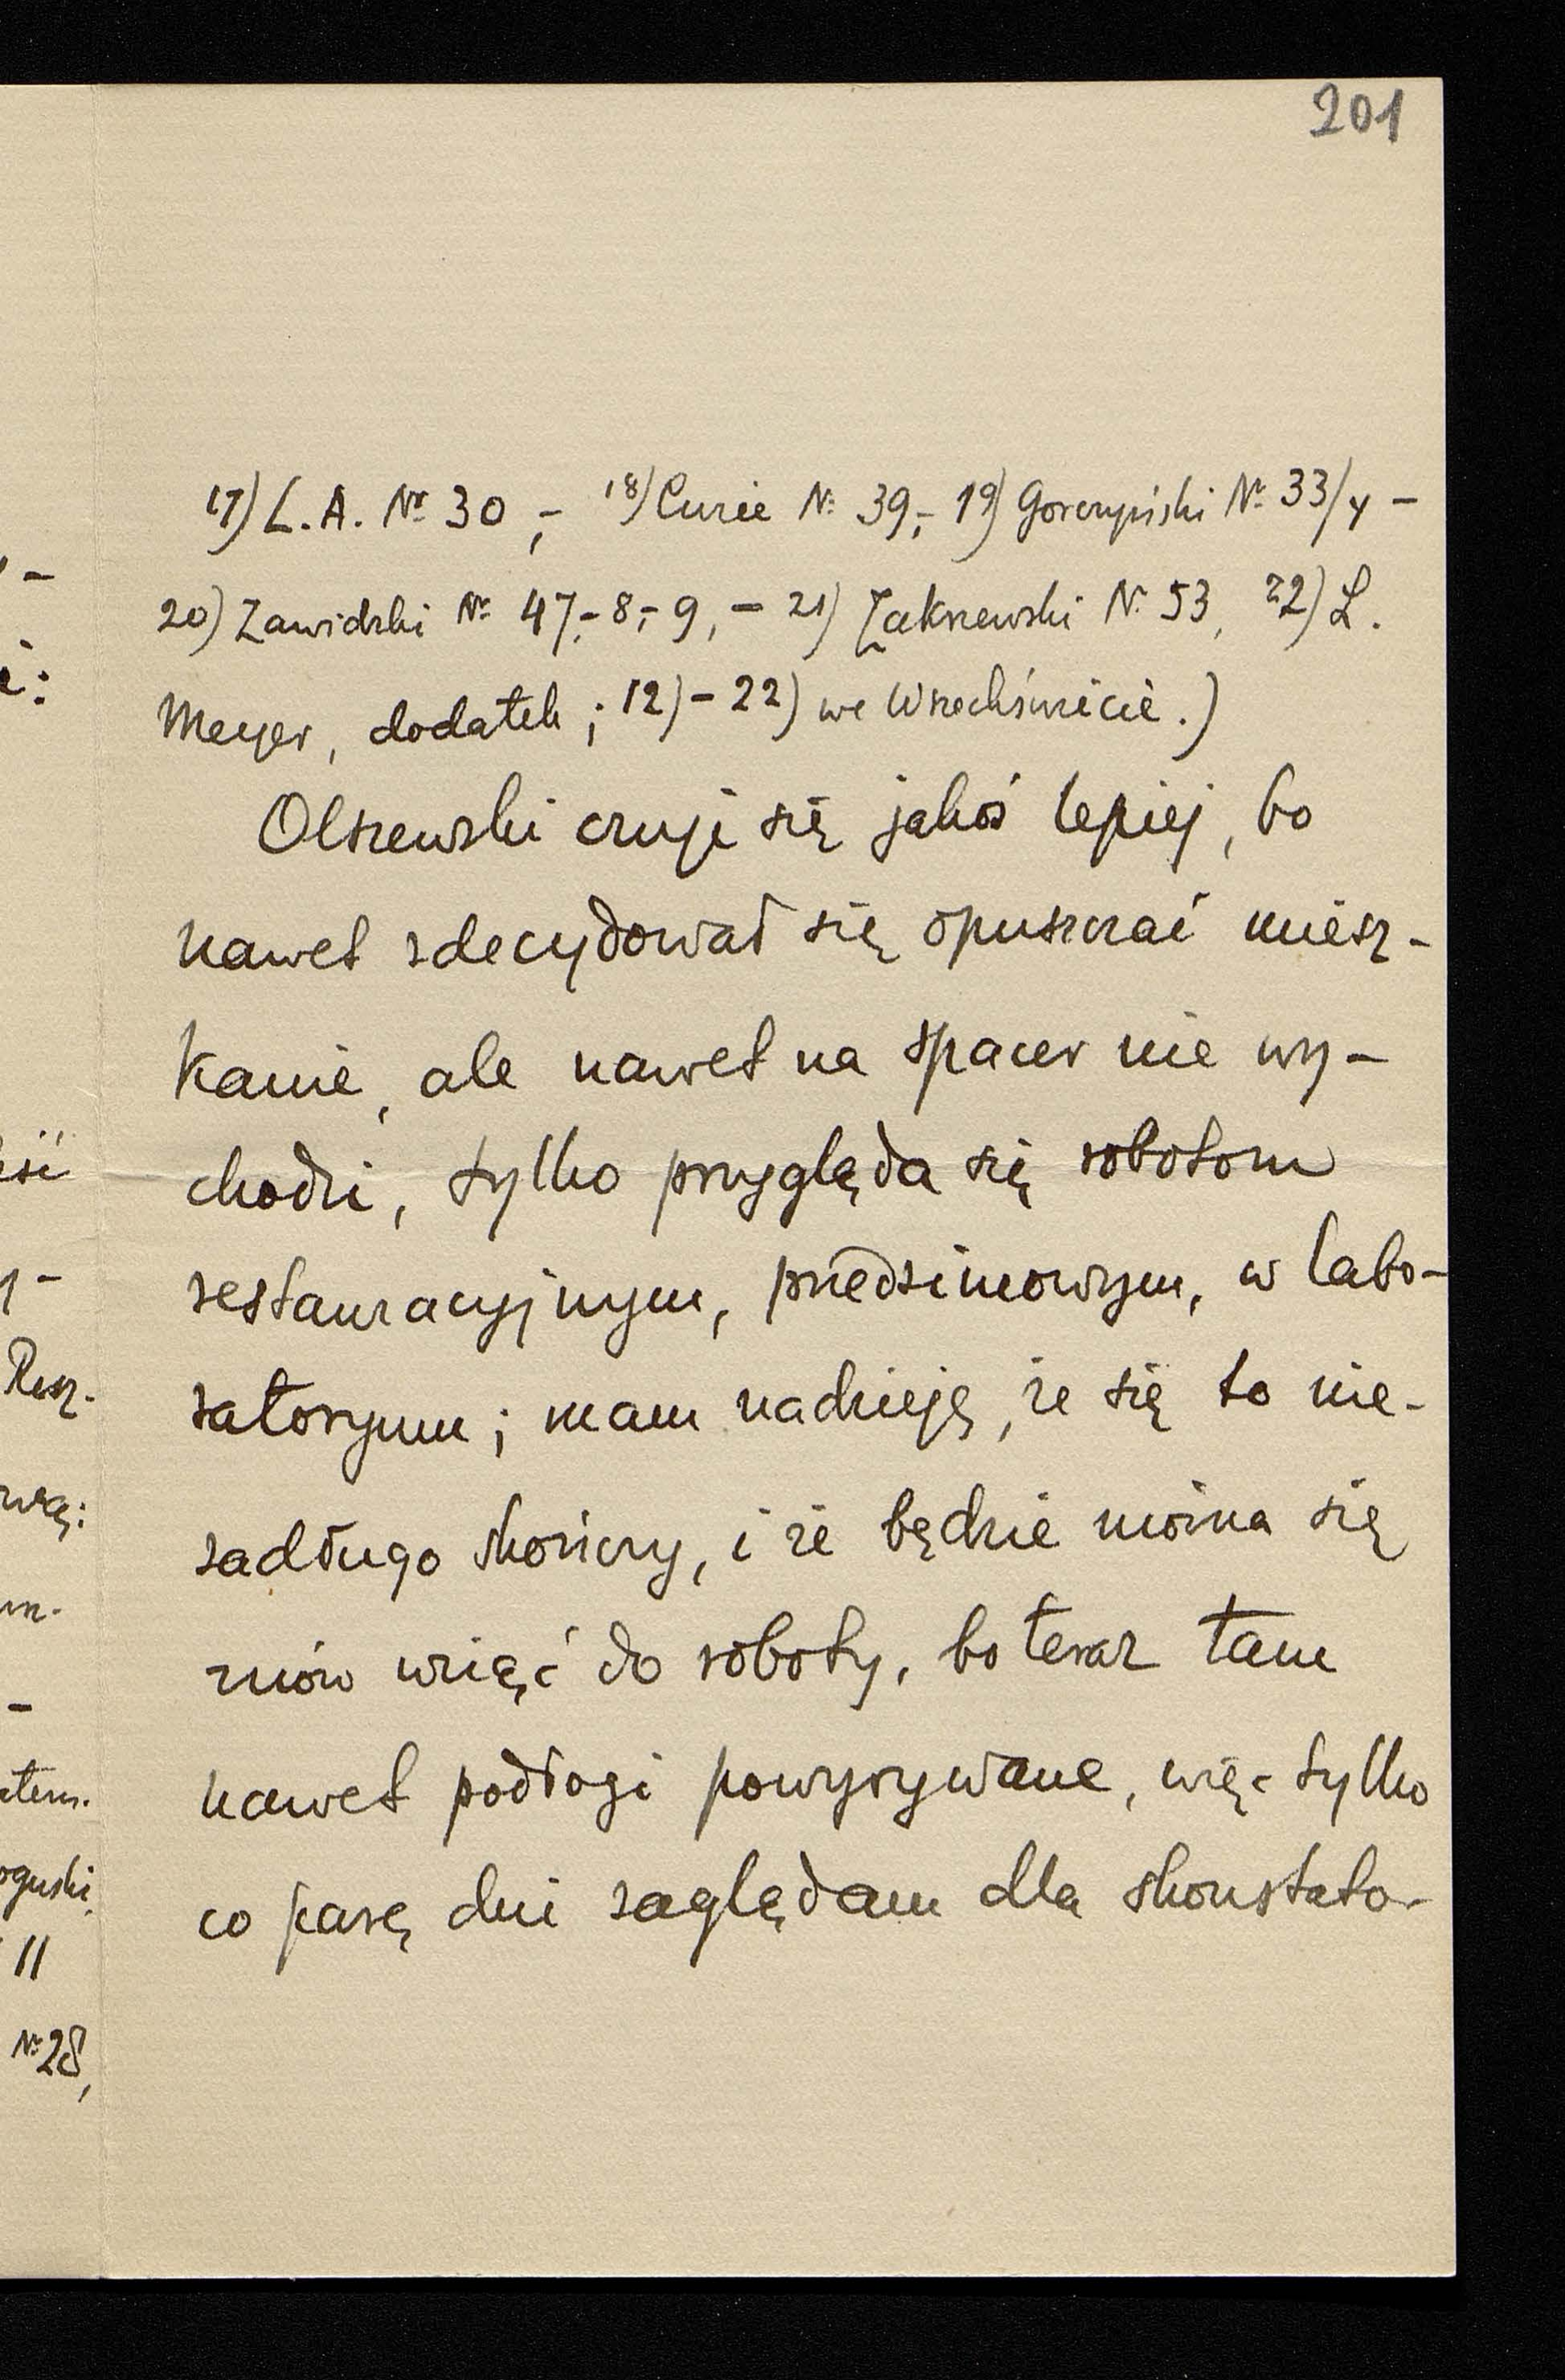 201
17) L. A. Nr 30, – 18) Curie Nr 39, – 19) Gorczyński Nr 33/4 –
20) Zawidzki Nr 47, – 8, – 9, – 21) Zakrzewski Nr 53, 22) L.
Meyer, dodatek; 12) – 22) we Wszechświecie.)
Olszewski czuje się jakoś lepiej, bo
nawet zdecydował się opuszczać miesz-
kanie, ale nawet na spacer nie wy-
chodzi, tylko przygląda się robotom
restauracyjnym, przedzimowym, w labo-
ratoryum; mam nadzieję, że się to nie-
zadługo skończy, i że będzie można się
znów wziąć do roboty, bo teraz tam
nawet podłogi powyrywane, więc tylko
co parę dni zaglądam dla skonstato-
Nr 28,
11